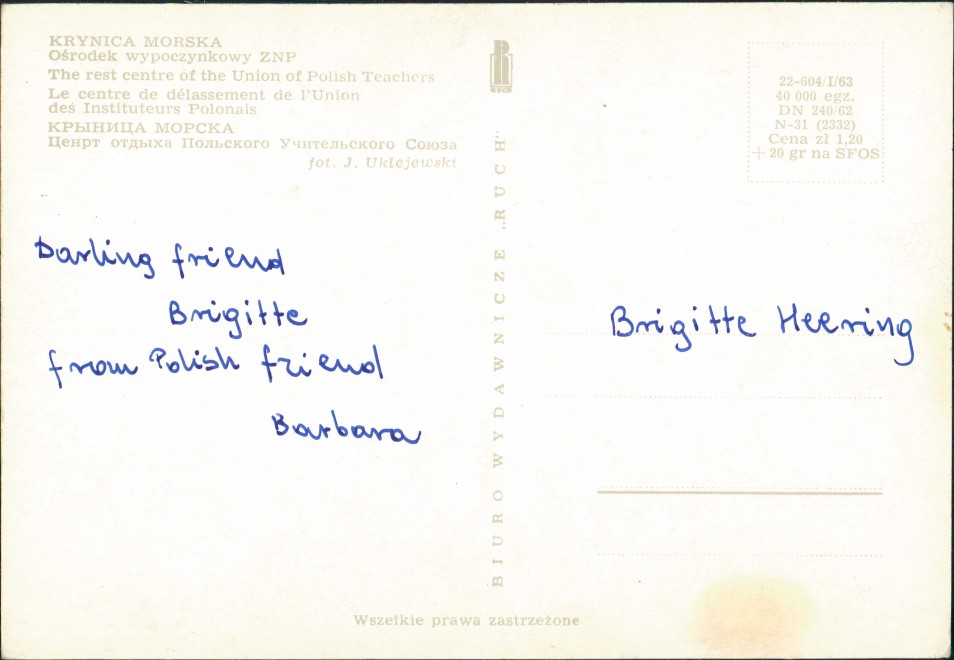 KRYNICA MORSKA
Ośrodek wypoczynkowy ZNP
The rest centre of the Union of Polish Teachers
Le centre de délassement de l'Union
des Instituteurs Polonais
КРЫНИЦА МОРСКА
Ценрт отдыха Польского Учительского Союза
fot. J. Uklejewski
Darling friend
Brigitte
from Polish friend
Barbara
BIURO WYDAWNICZE „RUCH"
RUCH
22-604/I/63
40 000 egz.
DN 240/62
N-31 (2332)
Cena zł 1,20
+ 20 gr na SFOS
Brigitte Heering
Wszelkie prawa zastrzeżone